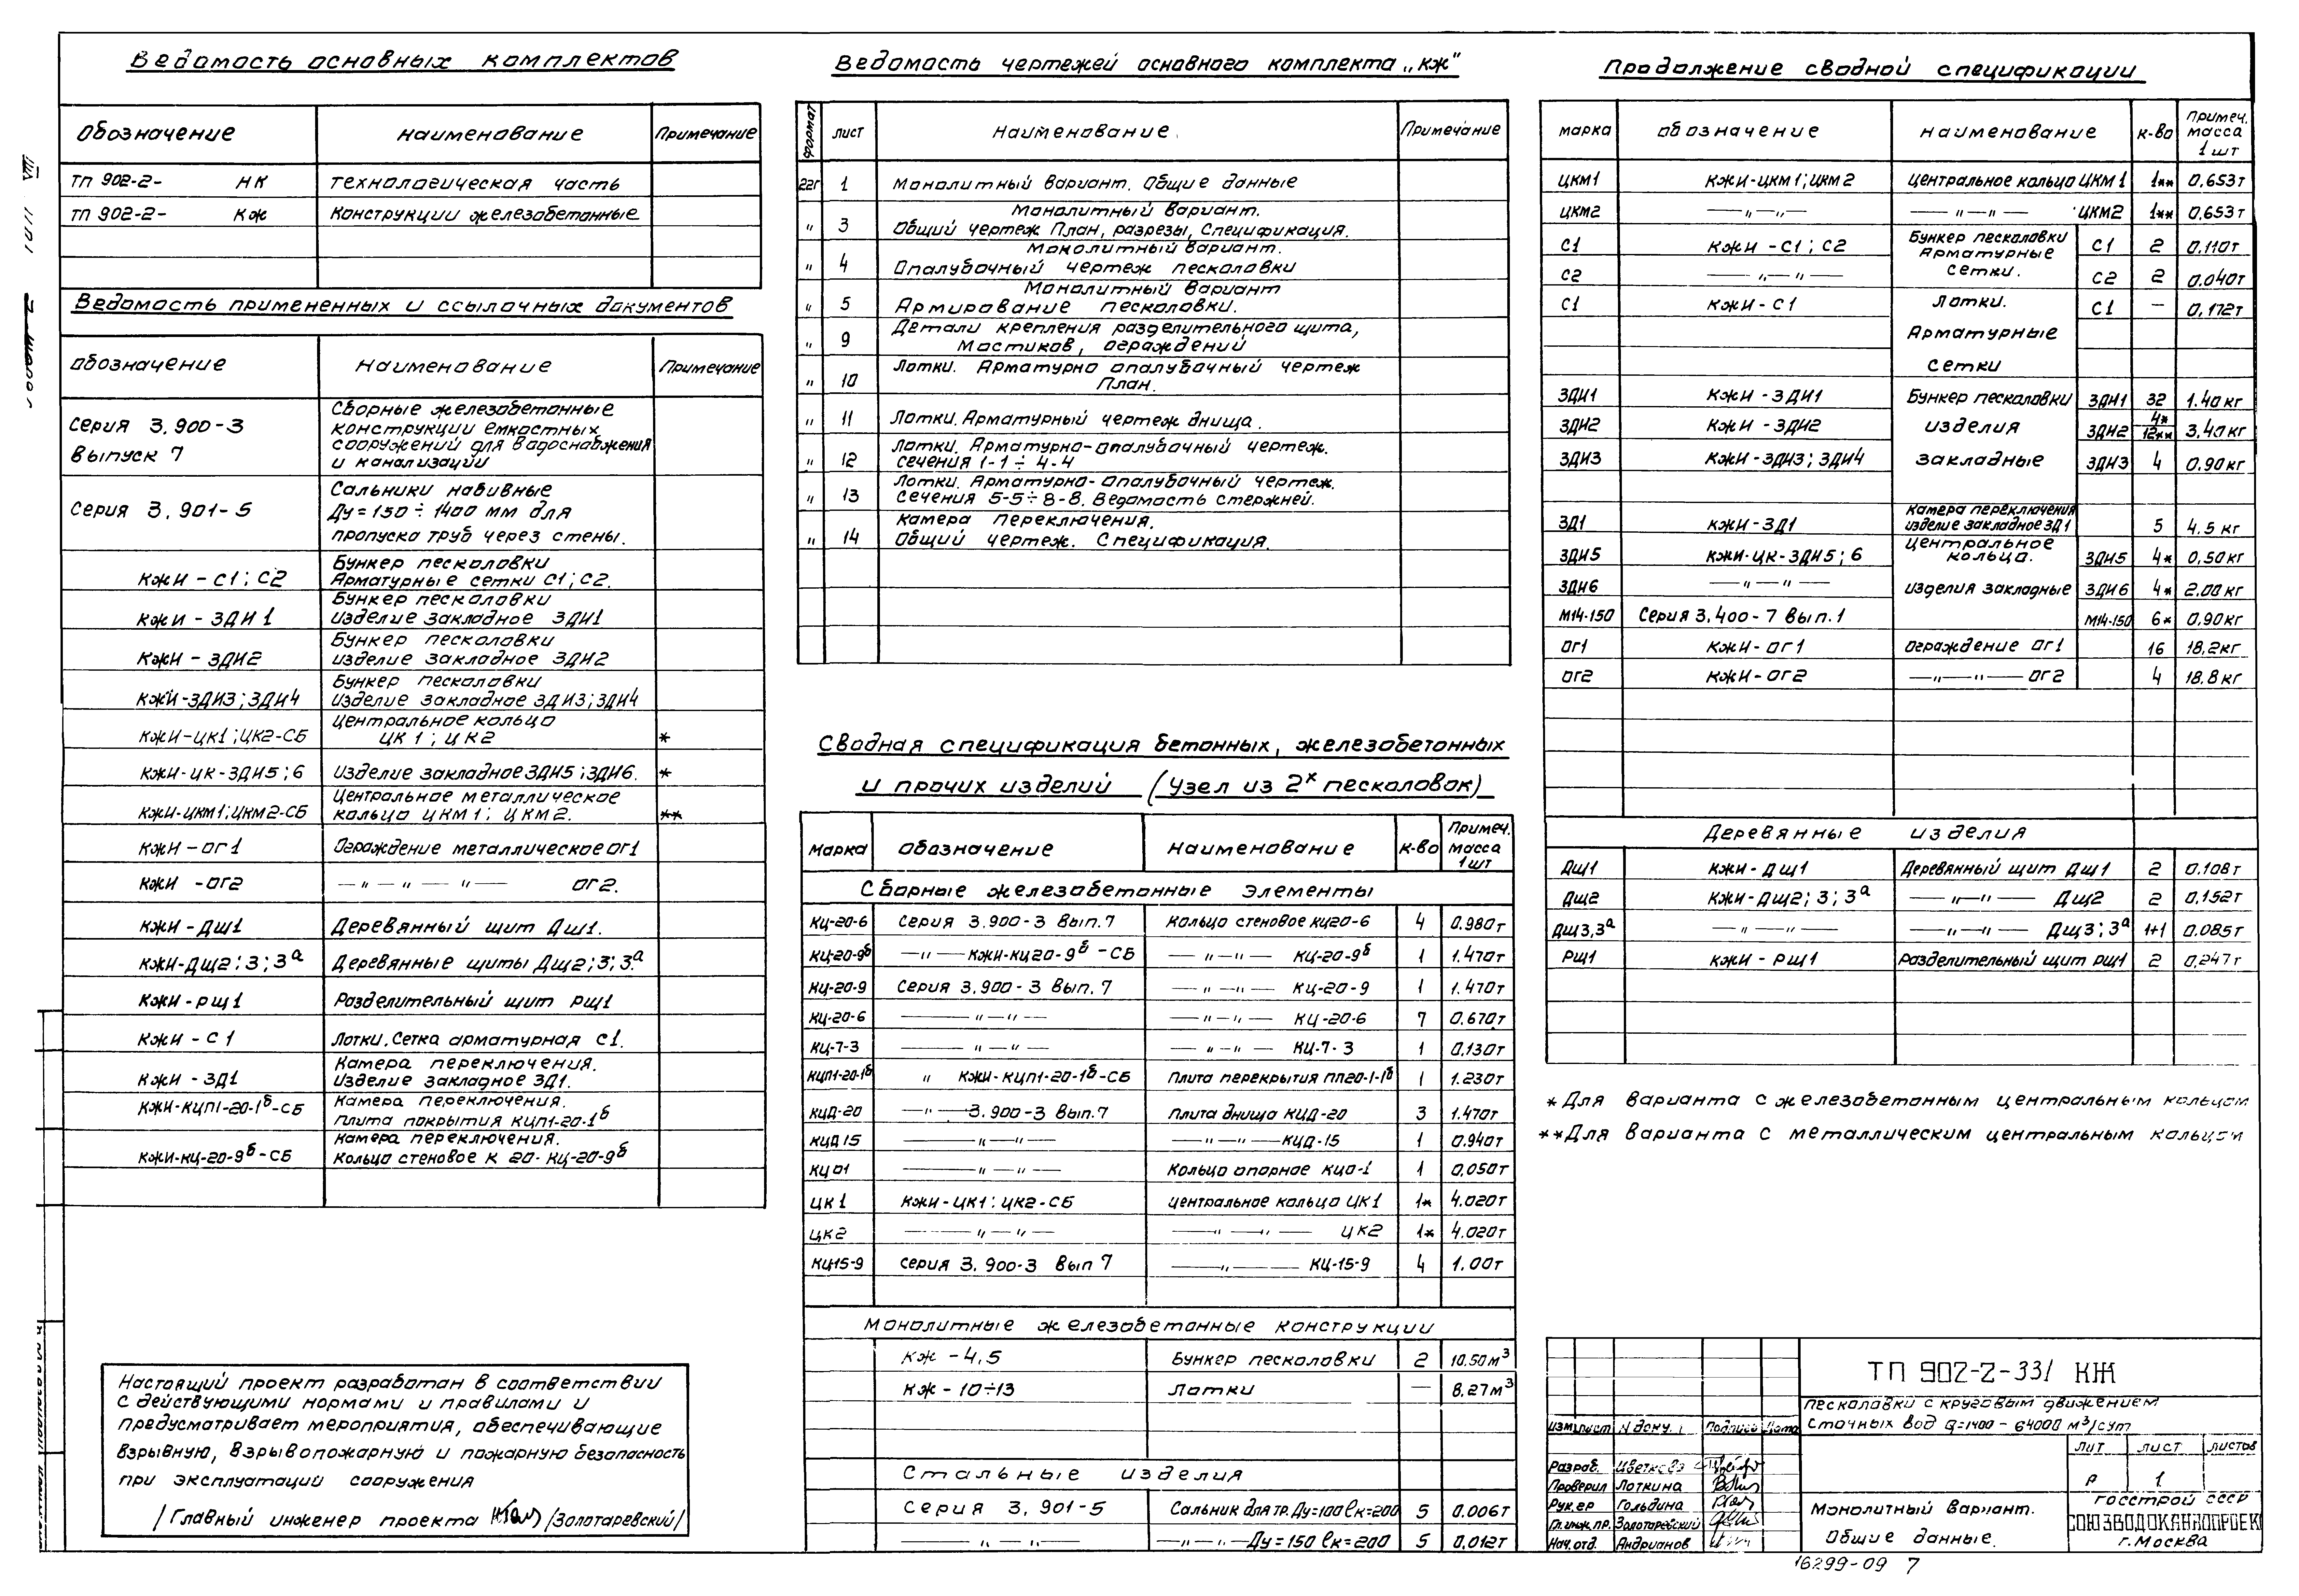 Ведомость основных комплектов
Обозначение Наименование Примечание
ТП 902-2- НК Технологическая часть
ТП 902-2- КЖ Конструкции железобетонные
Ведомость примененных и ссылочных документов
Обозначение Наименование Примечание
Серия 3.900-3 Выпуск 7
Сборные железобетонные
конструкции емкостных
сооружений для водоснабжения
и канализации
Серия 3.901-5
Сальники набивные
Ду=150÷1400 мм для
пропуска труб через стены.
КЖИ-С1; С2
Бункер песколовки
Арматурные сетки С1; С2.
КЖИ-ЗДИ1
Бункер песколовки
Изделие закладное ЗДИ1
КЖИ-ЗДИ2
Бункер песколовки
Изделие закладное ЗДИ2
КЖИ-ЗДИ3; ЗДИ4
Бункер песколовки
Изделие закладное ЗДИ3; ЗДИ4
КЖИ-ЦК1; ЦК2-СБ
Центральное кольцо
ЦК1; ЦК2 *
КЖИ-ЦК-ЗДИ5; 6 Изделие закладное ЗДИ5; ЗДИ6. *
КЖИ-ЦКМ1; ЦКМ2-СБ
Центральное металлическое
кольцо ЦКМ1; ЦКМ2. **
КЖИ-ОГ1 Ограждение металлическое ОГ1
КЖИ-ОГ2 —"—"—"— ОГ2.
КЖИ-ДЩ1 Деревянный щит ДЩ1.
КЖИ-ДЩ2; 3; 3а Деревянные щиты ДЩ2; 3; 3а
КЖИ-РЩ1 Разделительный щит РЩ1
КЖИ-С1 Лотки. Сетка арматурная С1.
КЖИ-ЗД1
Камера переключения.
Изделие закладное ЗД1.
КЖИ-КЦП1-20-1б-СБ
Камера переключения.
Плита покрытия КЦП1-20-1б
КЖИ-КЦ-20-9б-СБ
Камера переключения.
Кольцо стеновое К 20- КЦ-20-9б
Настоящий проект разработан в соответствии
с действующими нормами и правилами и
предусматривает мероприятия, обеспечивающие
взрывную, взрывопожарную и пожарную безопасность
при эксплуатации сооружения
/Главный инженер проекта /Золотаревский/
Ведомость чертежей основного комплекта „КЖ"
Формат Лист Наименование. Примечание
22г 1 Монолитный вариант. Общие данные
Монолитный вариант.
" 3 Общий чертеж План, разрезы, Спецификация.
Монолитный вариант.
" 4 Опалубочный чертеж песколовки
Монолитный вариант
" 5 Армирование песколовки.
Детали крепления разделительного щита,
" 9 Мостиков, ограждений
Лотки. Арматурно опалубочный чертеж
" 10 План.
" 11 Лотки. Арматурный чертеж днища.
Лотки. Арматурно-опалубочный чертеж.
" 12 сечения 1-1 ÷ 4-4
Лотки. Арматурно-опалубочный чертеж.
" 13 Сечения 5-5÷8-8. Ведомость стержней.
Камера переключения.
" 14 Общий чертеж. Спецификация.
Сводная спецификация бетонных, железобетонных
и прочих изделий (Узел из 2х песколовок)
Марка Обозначение Наименование к-во Примеч. масса 1 шт
Сборные железобетонные элементы
КЦ-20-6 Серия 3.900-3 вып.7 Кольцо стеновое КЦ20-6 4 0.980т
КЦ-20-9б —"—КЖИ-КЦ20-9б-СБ —"—"— КЦ-20-9б 1 1.470т
КЦ-20-9 Серия 3.900-3 вып.7 —"—"— КЦ-20-9 1 1.470т
КЦ-20-6 —"—"— —"—"— КЦ-20-6 7 0.670т
КЦ-7-3 —"—"— —"—"— КЦ-7-3 1 0.130т
КЦП1-20-1б " КЖИ-КЦП1-20-1б-СБ Плита перекрытия ПП20-1-1б 1 1.230т
КЦД-20 —"—3.900-3 вып.7 Плита днища КЦД-20 3 1.470т
КЦД15 —"—"— —"—"—КЦД-15 1 0.940т
КЦО1 —"—"— Кольцо опорное КЦО-1 1 0.050т
ЦК1 КЖИ-ЦК1; ЦК2-СБ Центральное кольцо ЦК1 1* 4.020т
ЦК2 —"—"— —"—"— ЦК2 1* 4.020т
КЦ15-9 Серия 3.900-3 вып 7 —"— КЦ-15-9 4 1.00т
Монолитные железобетонные конструкции
КЖ-4,5 Бункер песколовки 2 10.50м3
КЖ-10÷13 Лотки — 8.27м3
Стальные изделия
Серия 3.901-5 Сальник для тр. Ду=100 ℓк=200 5 0.006т
—"—"— —"—"—Ду=150 ℓк=200 5 0.012т
Продолжение сводной спецификации
Марка Обозначение Наименование к-во Примеч. масса 1 шт
ЦКМ1 КЖИ-ЦКМ1; ЦКМ2 Центральное кольцо ЦКМ1 1** 0.653т
ЦКМ2 —"—"— —"—"— ЦКМ2 1** 0.653т
С1 КЖИ-С1; С2 Бункер песколовки Арматурные С1 2 0.110т
С2 —"—"— сетки. С2 2 0.040т
С1 КЖИ-С1 Лотки. С1 — 0,172т
Арматурные
сетки
ЗДИ1 КЖИ-ЗДИ1 Бункер песколовки ЗДИ1 32 1.40кг
ЗДИ2 КЖИ-ЗДИ2 изделия ЗДИ2 4* 12** 3.40кг
ЗДИ3 КЖИ-ЗДИ3; ЗДИ4 закладные ЗДИ3 4 0.90кг
Камера переключения
ЗД1 КЖИ-ЗД1 изделие закладное ЗД1 5 4.5 кг
ЗДИ5 КЖИ-ЦК-ЗДИ5; 6 Центральное кольцо. ЗДИ5 4* 0,50кг
ЗДИ6 —"—"— изделия закладные ЗДИ6 4* 2.00кг
М14-150 Серия 3.400-7 вып.1 М14-150 6* 0,90кг
ОГ1 КЖИ-ОГ1 Ограждение ОГ1 16 18.2кг
ОГ2 КЖИ-ОГ2 —"—"— ОГ2 4 18.8кг
Деревянные изделия
ДЩ1 КЖИ-ДЩ1 Деревянный щит ДЩ1 2 0.108т
ДЩ2 КЖИ-ДЩ2; 3; 3а —"—"— ДЩ2 2 0.152т
ДЩ3,3а —"—"— —"—"— ДЩ3; 3а 1+1 0.085т
РЩ1 КЖИ-РЩ1 Разделительный щит РЩ1 2 0.247т
* Для варианта с железобетонным центральным кольцом
** Для варианта с металлическим центральным кольцом
ТП 902-2-331 КЖ
Песколовки с круговым движением
сточных вод q=1400-64000 м3/сут
Изм Лист N докум. Подпись Дата
Лит Лист Листов
Р 1
Разраб. Цветкова
Проверил Лоткина
Рук.ер Гольдина
Гл.инж.пр. Золотаревский
Нач.отд. Андрианов
Монолитный вариант.
Общие данные.
Госстрой СССР
СОЮЗВОДОКАНАЛПРОЕКТ
г.Москва
16299-09 7